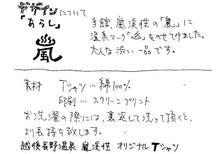 デザインについて
「あらし」
嵐
手錦、嵐渓荘の「嵐」に
温泉マーク"♨"をのせてみました。
大人な渋い一品です。
素材 Tシャツ…綿100%
印刷…スクリーンプリント
お洗濯の際には、裏返して洗って頂くと、
より長持ち致します。
越後長野温泉 嵐渓荘 オリジナルTシャツ